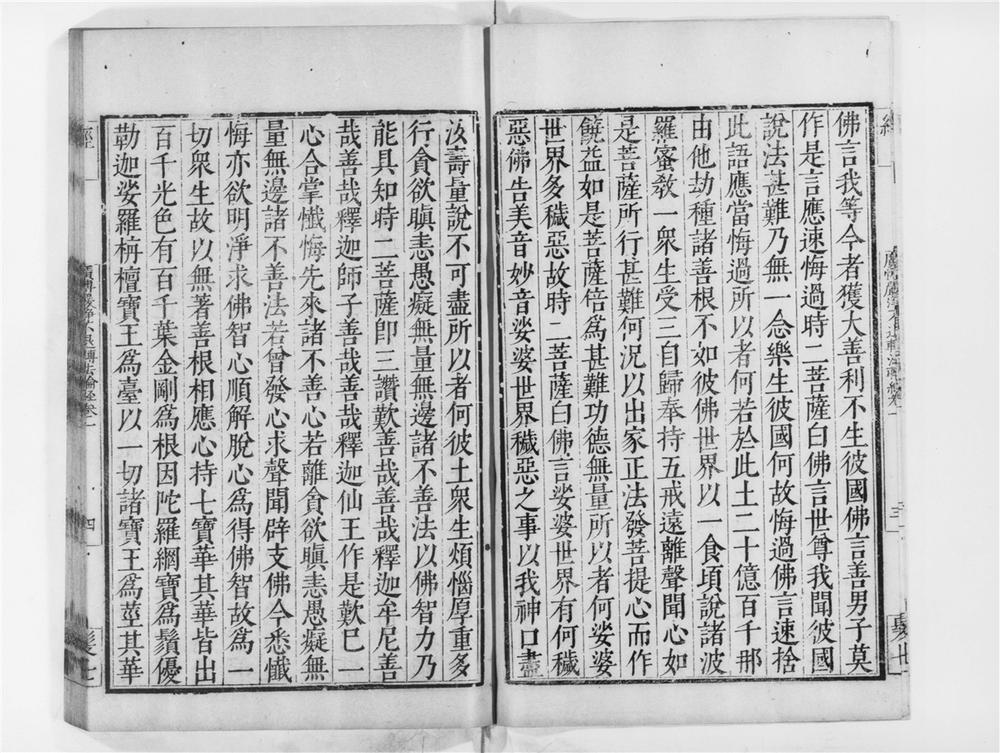 佛言我等今者獲大善利不生彼國佛言善男子莫
作是言應速悔過時二菩薩白佛言世尊我聞彼國
說法甚難乃無一念樂生彼國何故悔過佛言速捨
此語應當悔過所以者何若於此土二十億百千那
由他劫種諸善根不如彼佛世界以一食頃說諸波
羅蜜敎一衆生受三自歸奉持五戒遠離聲聞心如
是菩薩所行甚難何況以出家正法發菩提心而作
饒益如是菩薩倍爲甚難功德無量所以者何娑婆
世界多穢惡故時二菩薩白佛言娑婆世界有何穢
惡佛告美音妙音娑婆世界穢惡之事以我神口盡
汝壽量說不可盡所以者何彼土衆生煩惱厚重多
行貪欲瞋恚愚癡無量無邊諸不善法以佛智力乃
能具知時二菩薩卽三讚歎善哉善哉釋迦牟尼善
哉善哉釋迦師子善哉善哉釋迦仙王作是歎已一
心合掌懺悔先來諸不善心若離貪欲瞋恚愚癡無
量無邊諸不善法若曾發心求聲聞辟支佛今悉懺
悔亦欲明淨求佛智心順解脫心爲得佛智故爲一
切衆生故以無著善根相應心持七寶華其華皆出
百千光色有百千葉金剛爲根因陀羅網寶爲鬚優
勒迦娑羅栴檀寶王爲臺以一切諸寶王爲莖其華
經
四
髮七